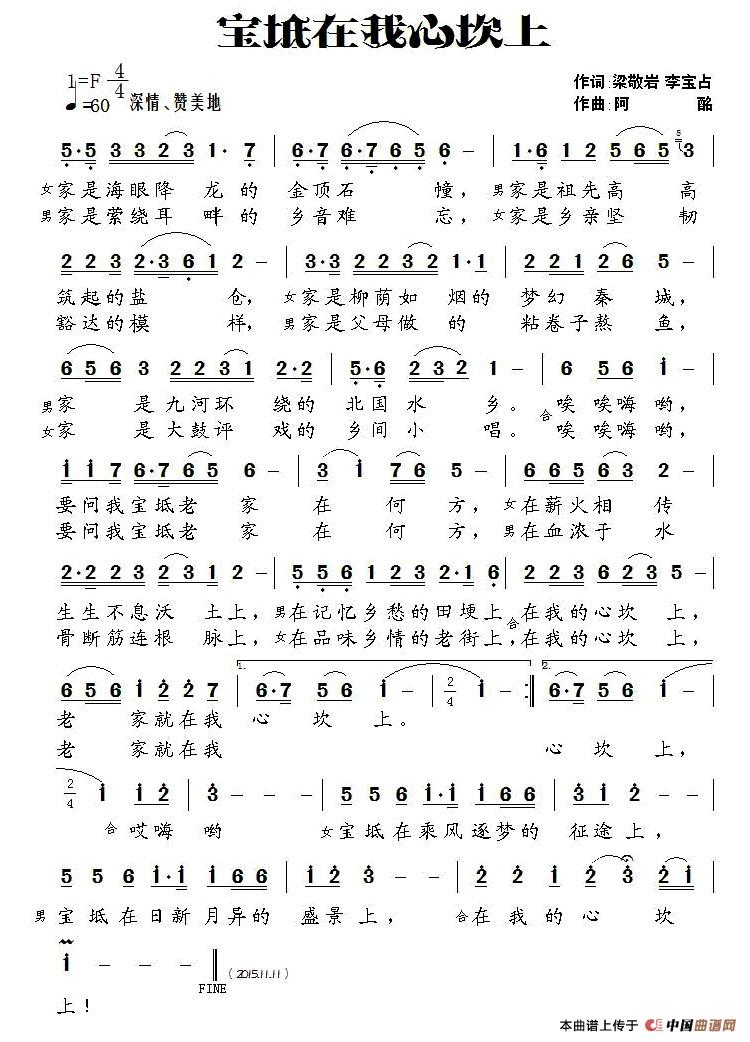 宝坻在我心坎上
1=F 4/4
♩=60 深情、赞美地
作词:梁敬岩 李宝占
作曲:阿 酩
5·5 3 3 2 3 1· 7 | 6·7 6·7 6 5 6 – | 1·6 1 2 5 6 5 5 3
女家是海眼降 龙的 金顶石 幢, 男家是祖先高 高
男家是萦绕耳 畔的 乡音难 忘, 女家是乡亲坚 韧
2 2 3 2·3 6 1 2 – | 3·3 2 2 3 2 1·1 | 2 2 1 2 6 5 – |
筑起的盐 仓, 女家是柳荫如 烟的 梦幻秦 城,
豁达的模 样, 男家是父母做 的 粘卷子熬 鱼,
6 5 6 3 2 2 3 1 2·2 | 5·6 2 3 2 1 – | 6 5 6 i – |
男家 是九河环 绕的 北国水 乡。 合唉唉嗨哟,
女家 是大鼓评 戏的 乡间小 唱。 唉唉嗨哟,
i i 7 6·7 6 5 6 – | 3 i 7 6 5 – | 6 6 5 6 3 2 –
要问我宝坻老 家 在 何 方, 女在薪火相 传
要问我宝坻老 家 在 何 方, 男在血浓于 水
2·2 2 3 2 3 1 2 – | 5 5 6 1 2 3 2·1 6 | 2 2 2 6 2 3 5 – |
生生不息沃 土上, 男在记忆乡愁的田埂上合在我的心坎 上,
骨断筋连根 脉上, 女在品味乡情的老街上,在我的心坎 上,
6 5 6 i 2 2 7 | 1. 6·7 5 6 i – | 2/4 i – :| 2. 6·7 5 6 i –
老 家就在我 心 坎 上。
老 家就在我 心 坎 上,
2/4 i i 2 | 3 – – | 5 5 6 i·i i 6 6 | i 2 3 – –
合哎嗨 哟 女宝坻在乘风逐梦的 征途上,
5 5 6 i·i i 6 6 | i 2 3 – – | 2 2 i 2 3 2 i |
男宝坻在日新月异的 盛景上, 合在我的心 坎
i – – FINE (2015.11.11)
上!
本曲谱上传于 中国曲谱网